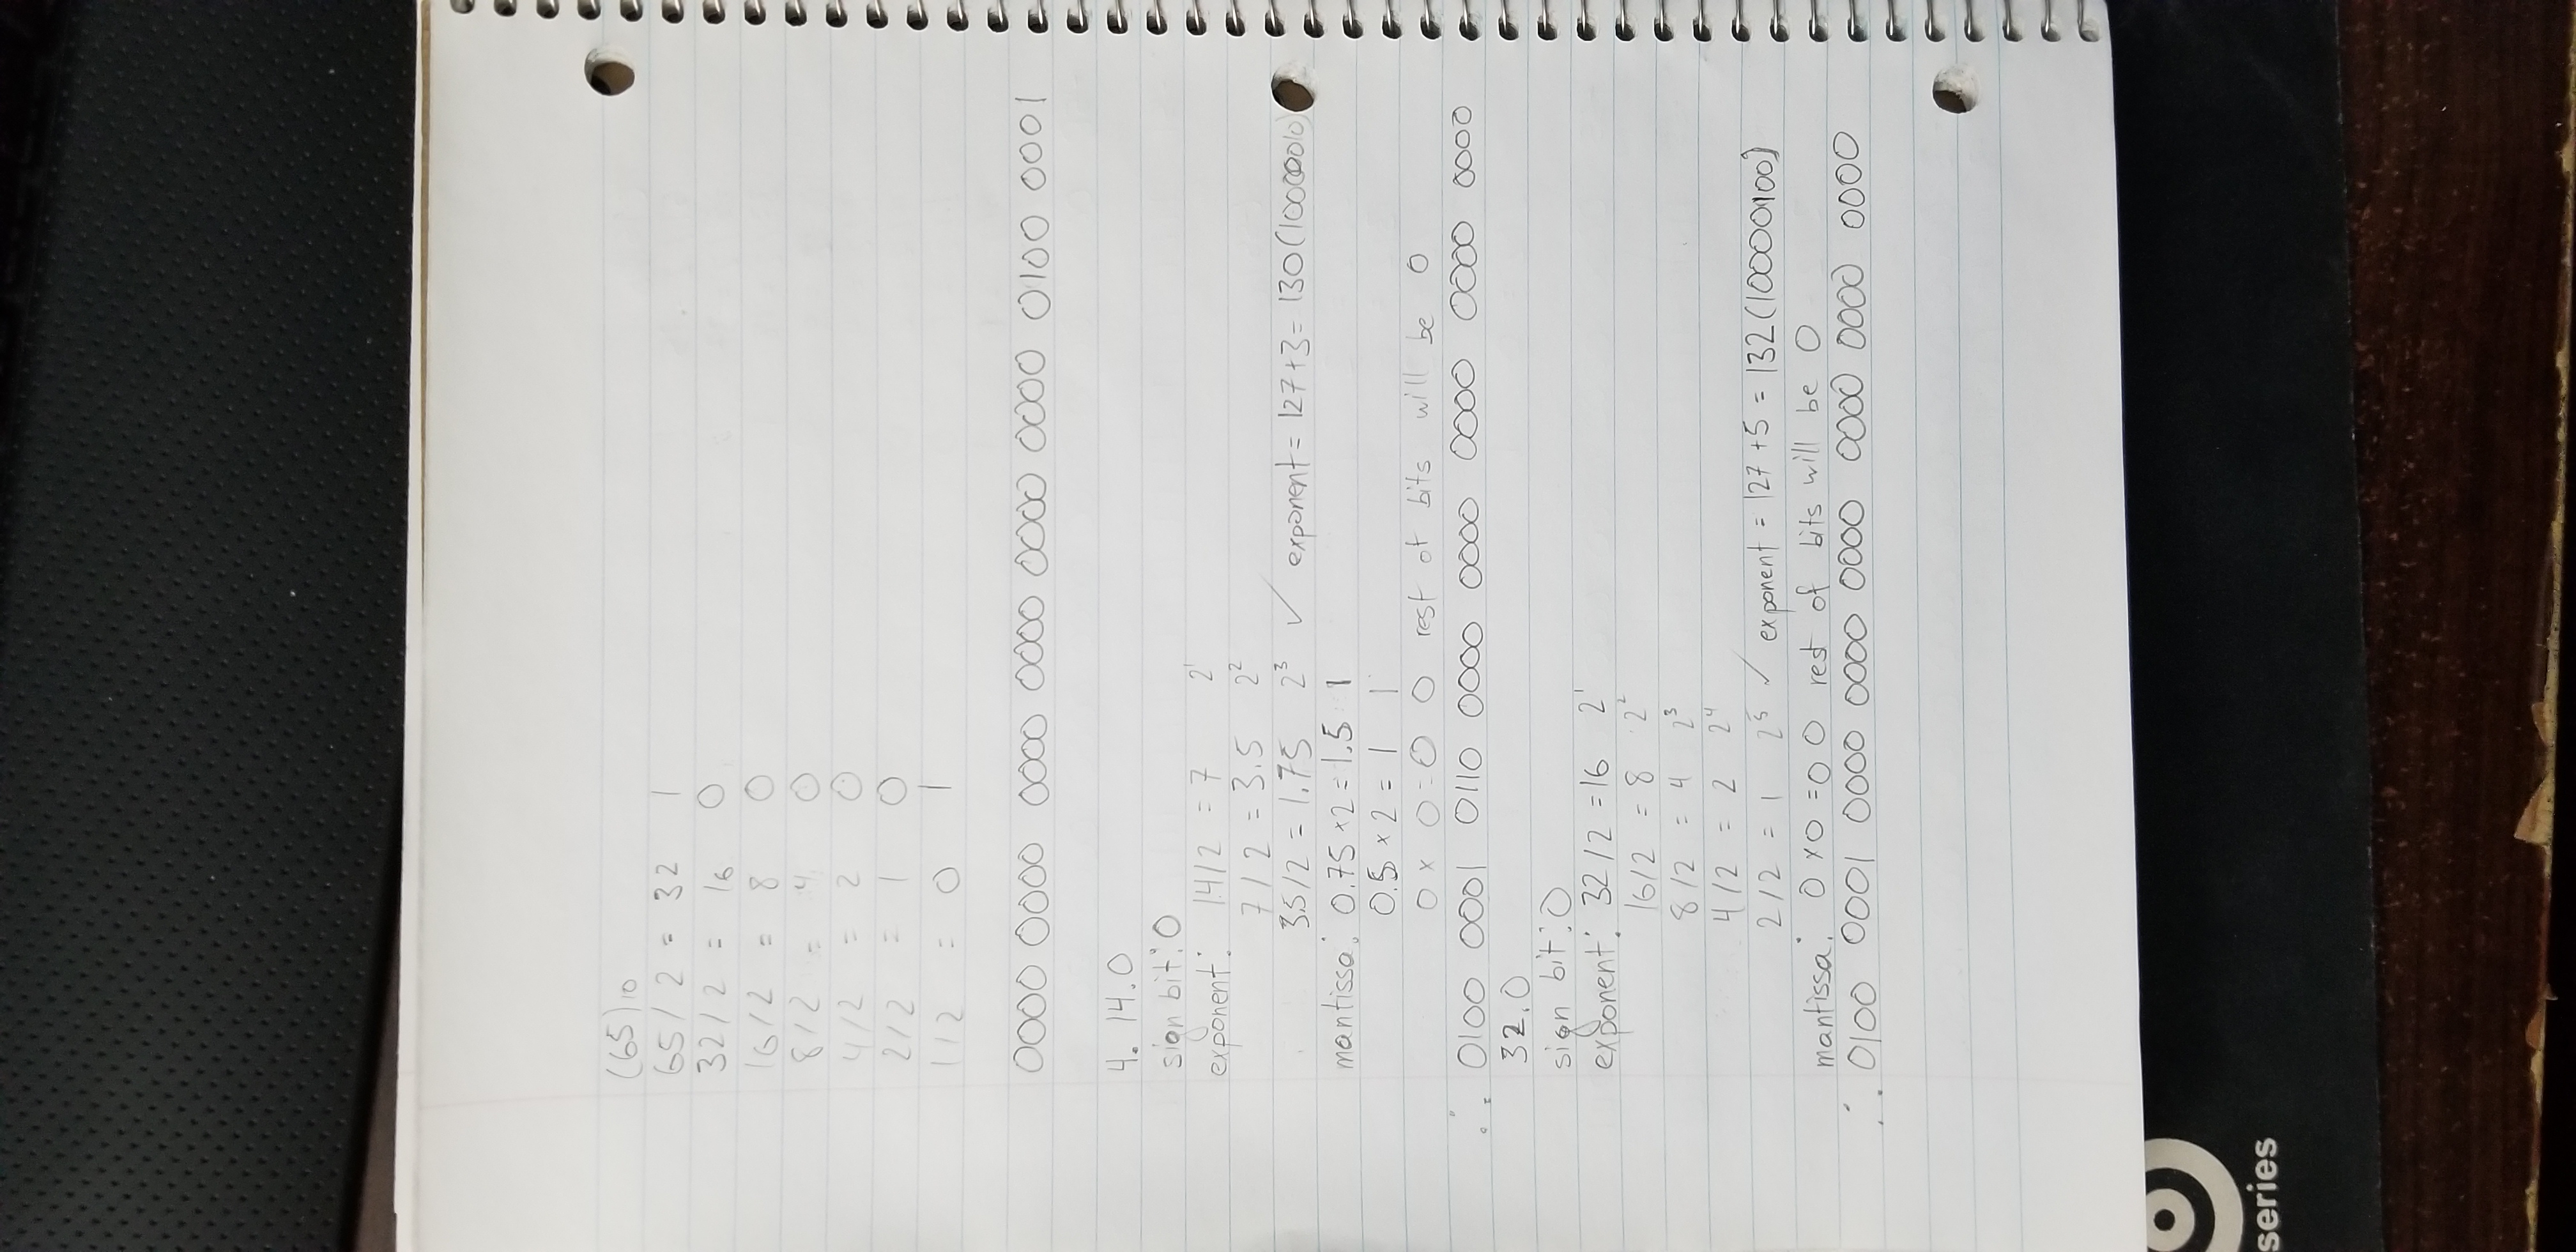 (65)10
65/2 = 32 1
32/2 = 16 0
16/2 = 8 0
8/2 = 4 0
4/2 = 2 0
2/2 = 1 0
1/2 = 0 1
0000 0000 0000 0000 0000 0000 0100 0001
4. 14.0
sign bit: 0
exponent: 14/2 = 7 2¹
7/2 = 3.5 2²
3.5/2 = 1.75 2³ ✓ exponent = 127+3 = 130 (10000010)
mantissa: 0.75 × 2 = 1.5 1
0.5 × 2 = 1 1
0 × 0 = 0 0 rest of bits will be 0
∴ 0100 0001 0110 0000 0000 0000 0000 0000
32.0
sign bit: 0
exponent: 32/2 = 16 2¹
16/2 = 8 2²
8/2 = 4 2³
4/2 = 2 2⁴
2/2 = 1 2⁵ ✓ exponent = 127 + 5 = 132 (10000100)
mantissa: 0 × 0 = 0 0 rest of bits will be 0
∴ 0100 0001 0000 0000 0000 0000 0000 0000
series